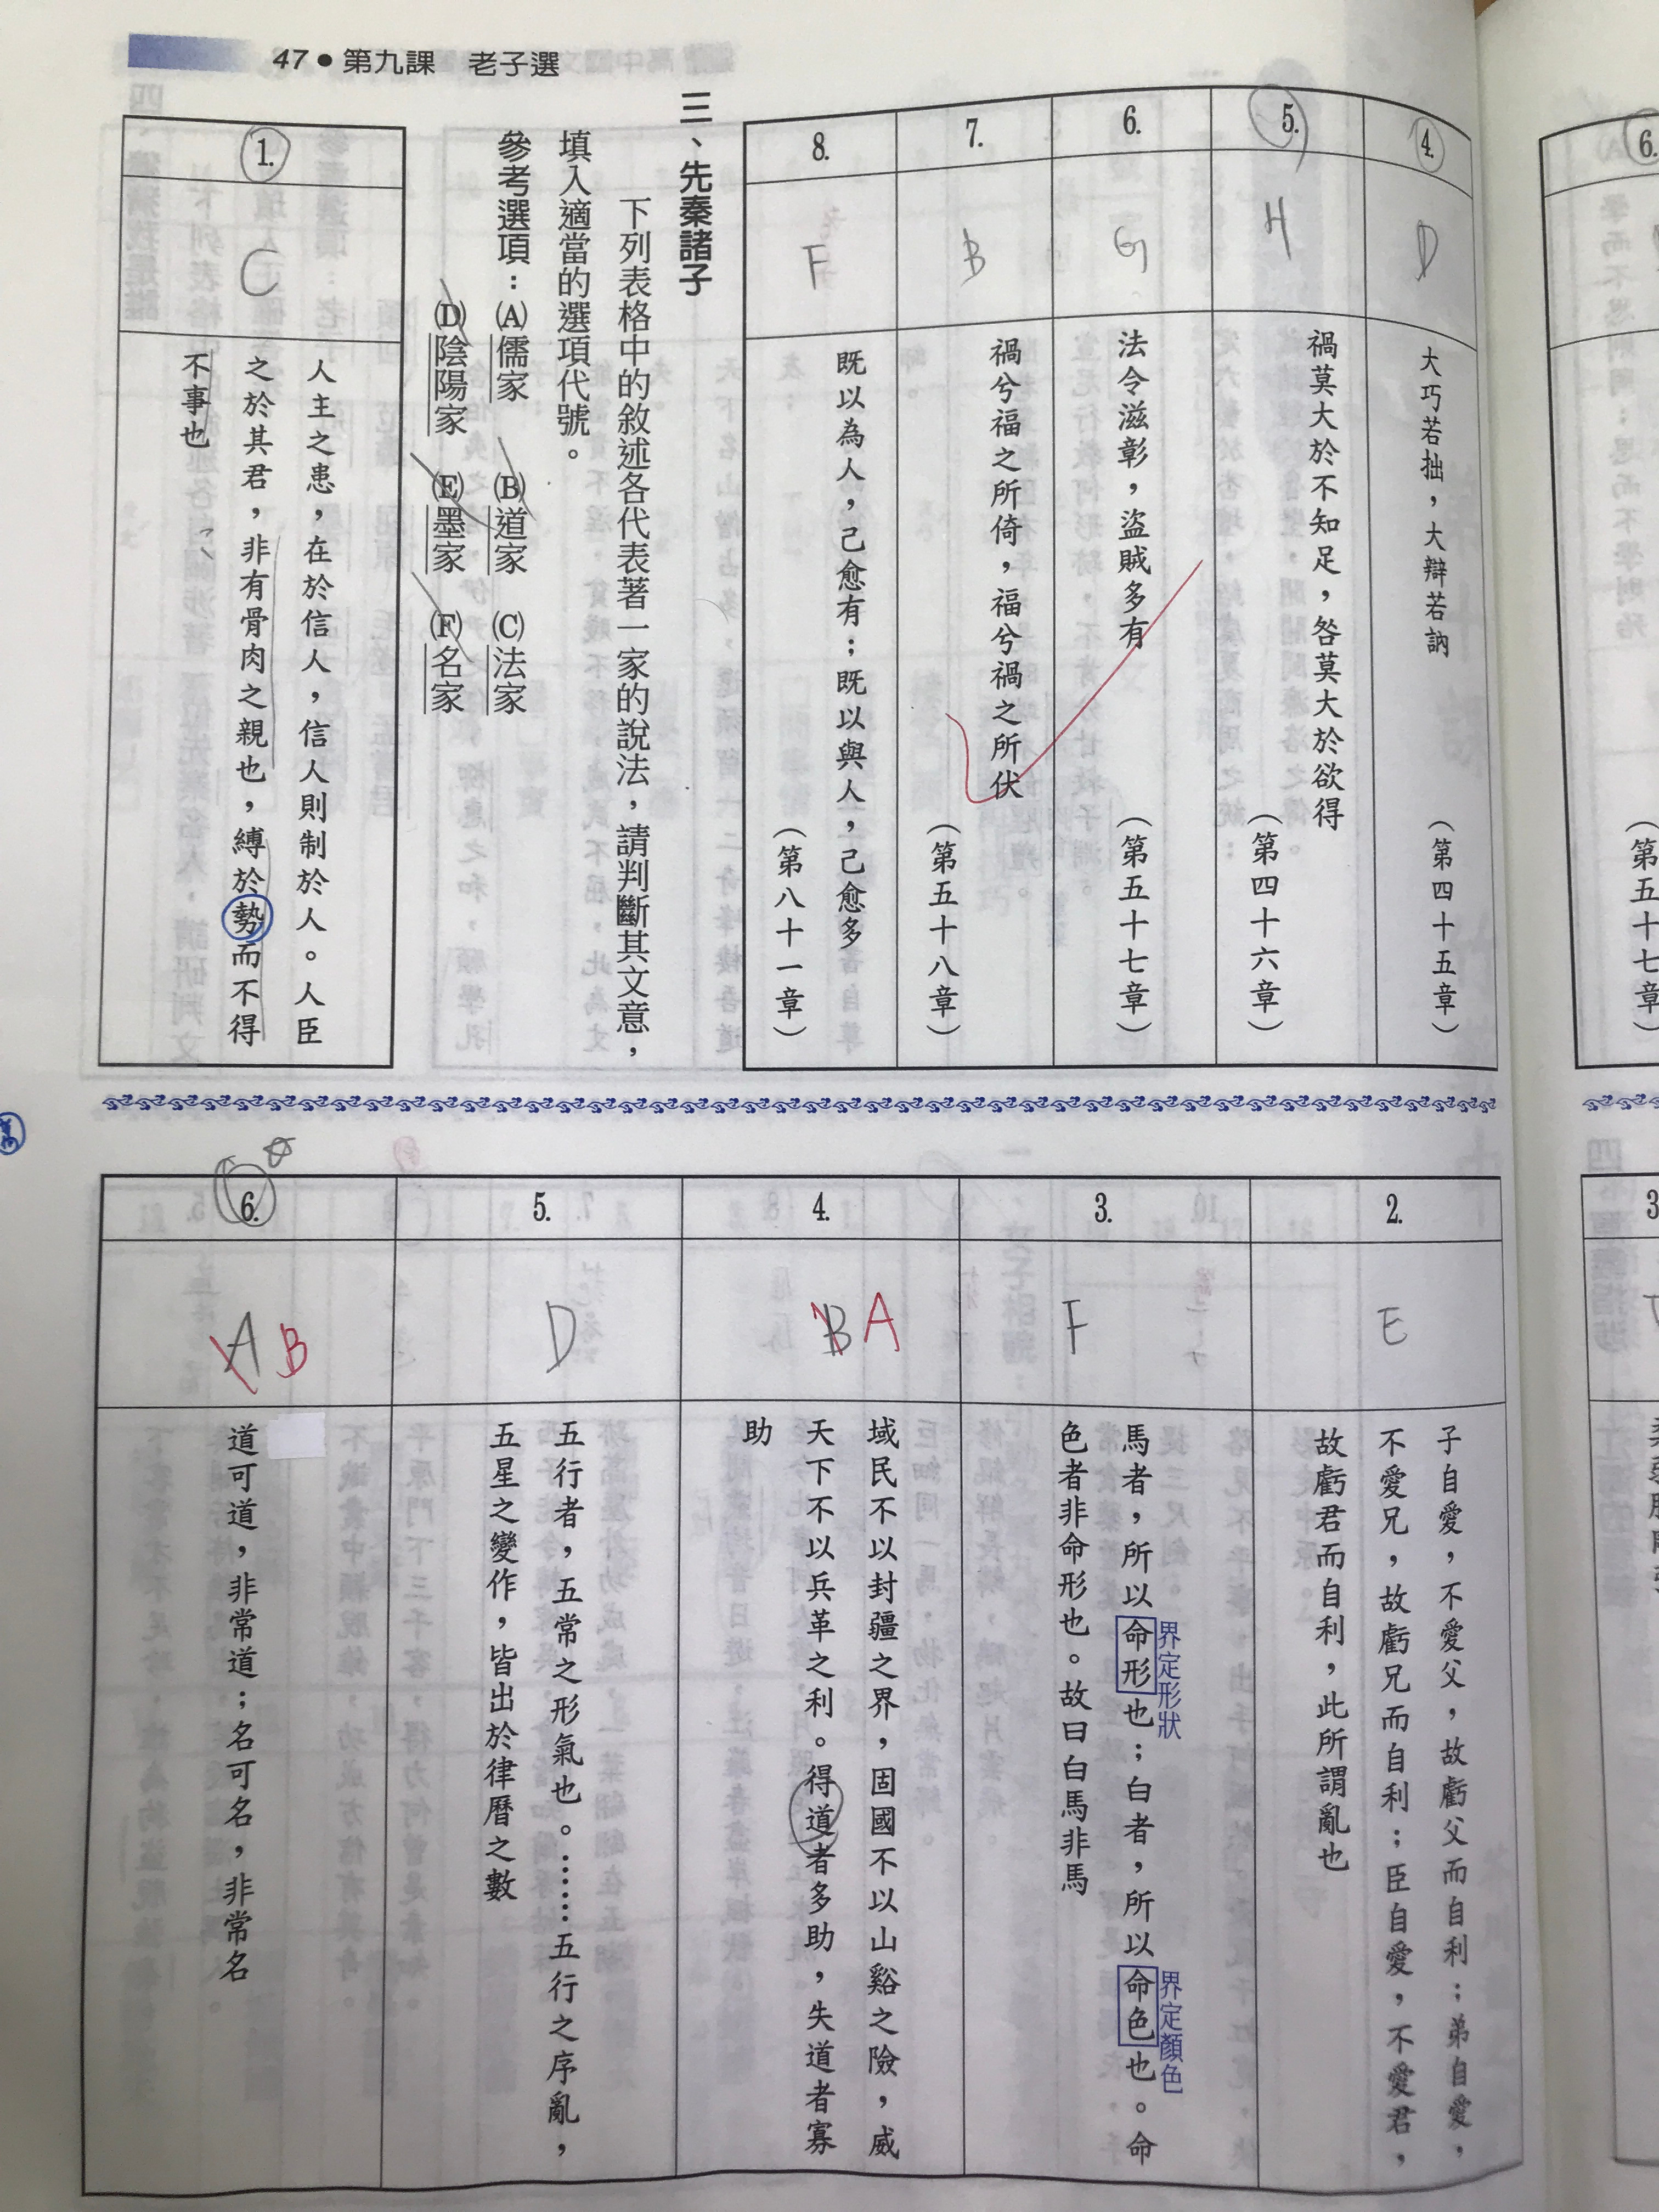 47●第九課 老子選
4.
D
大巧若拙，大辯若訥
（第四十五章）
5.
H
禍莫大於不知足，咎莫大於欲得
（第四十六章）
6.
G
法令滋彰，盜賊多有
（第五十七章）
7.
B
禍兮福之所倚，福兮禍之所伏
（第五十八章）
8.
F
既以為人，己愈有；既以與人，己愈多
（第八十一章）
三、先秦諸子
下列表格中的敘述各代表著一家的說法，請判斷其文意，
填入適當的選項代號。
參考選項：(A)儒家 (B)道家 (C)法家
(D)陰陽家 (E)墨家 (F)名家
1.
C
人主之患，在於信人，信人則制於人。人臣
之於其君，非有骨肉之親也，縛於勢而不得
不事也
2.
E
子自愛，不愛父，故虧父而自利；弟自愛，
不愛兄，故虧兄而自利；臣自愛，不愛君，
故虧君而自利，此所謂亂也
3.
F
馬者，所以命形也；白者，所以命色也。命
界定形狀
界定顏色
色者非命形也。故曰白馬非馬
4.
B A
域民不以封疆之界，固國不以山谿之險，威
天下不以兵革之利。得道者多助，失道者寡
助
5.
D
五行者，五常之形氣也。……五行之序亂，
五星之變作，皆出於律曆之數
6.
A B
道可道，非常道；名可名，非常名
6.
（第五十七章）
3